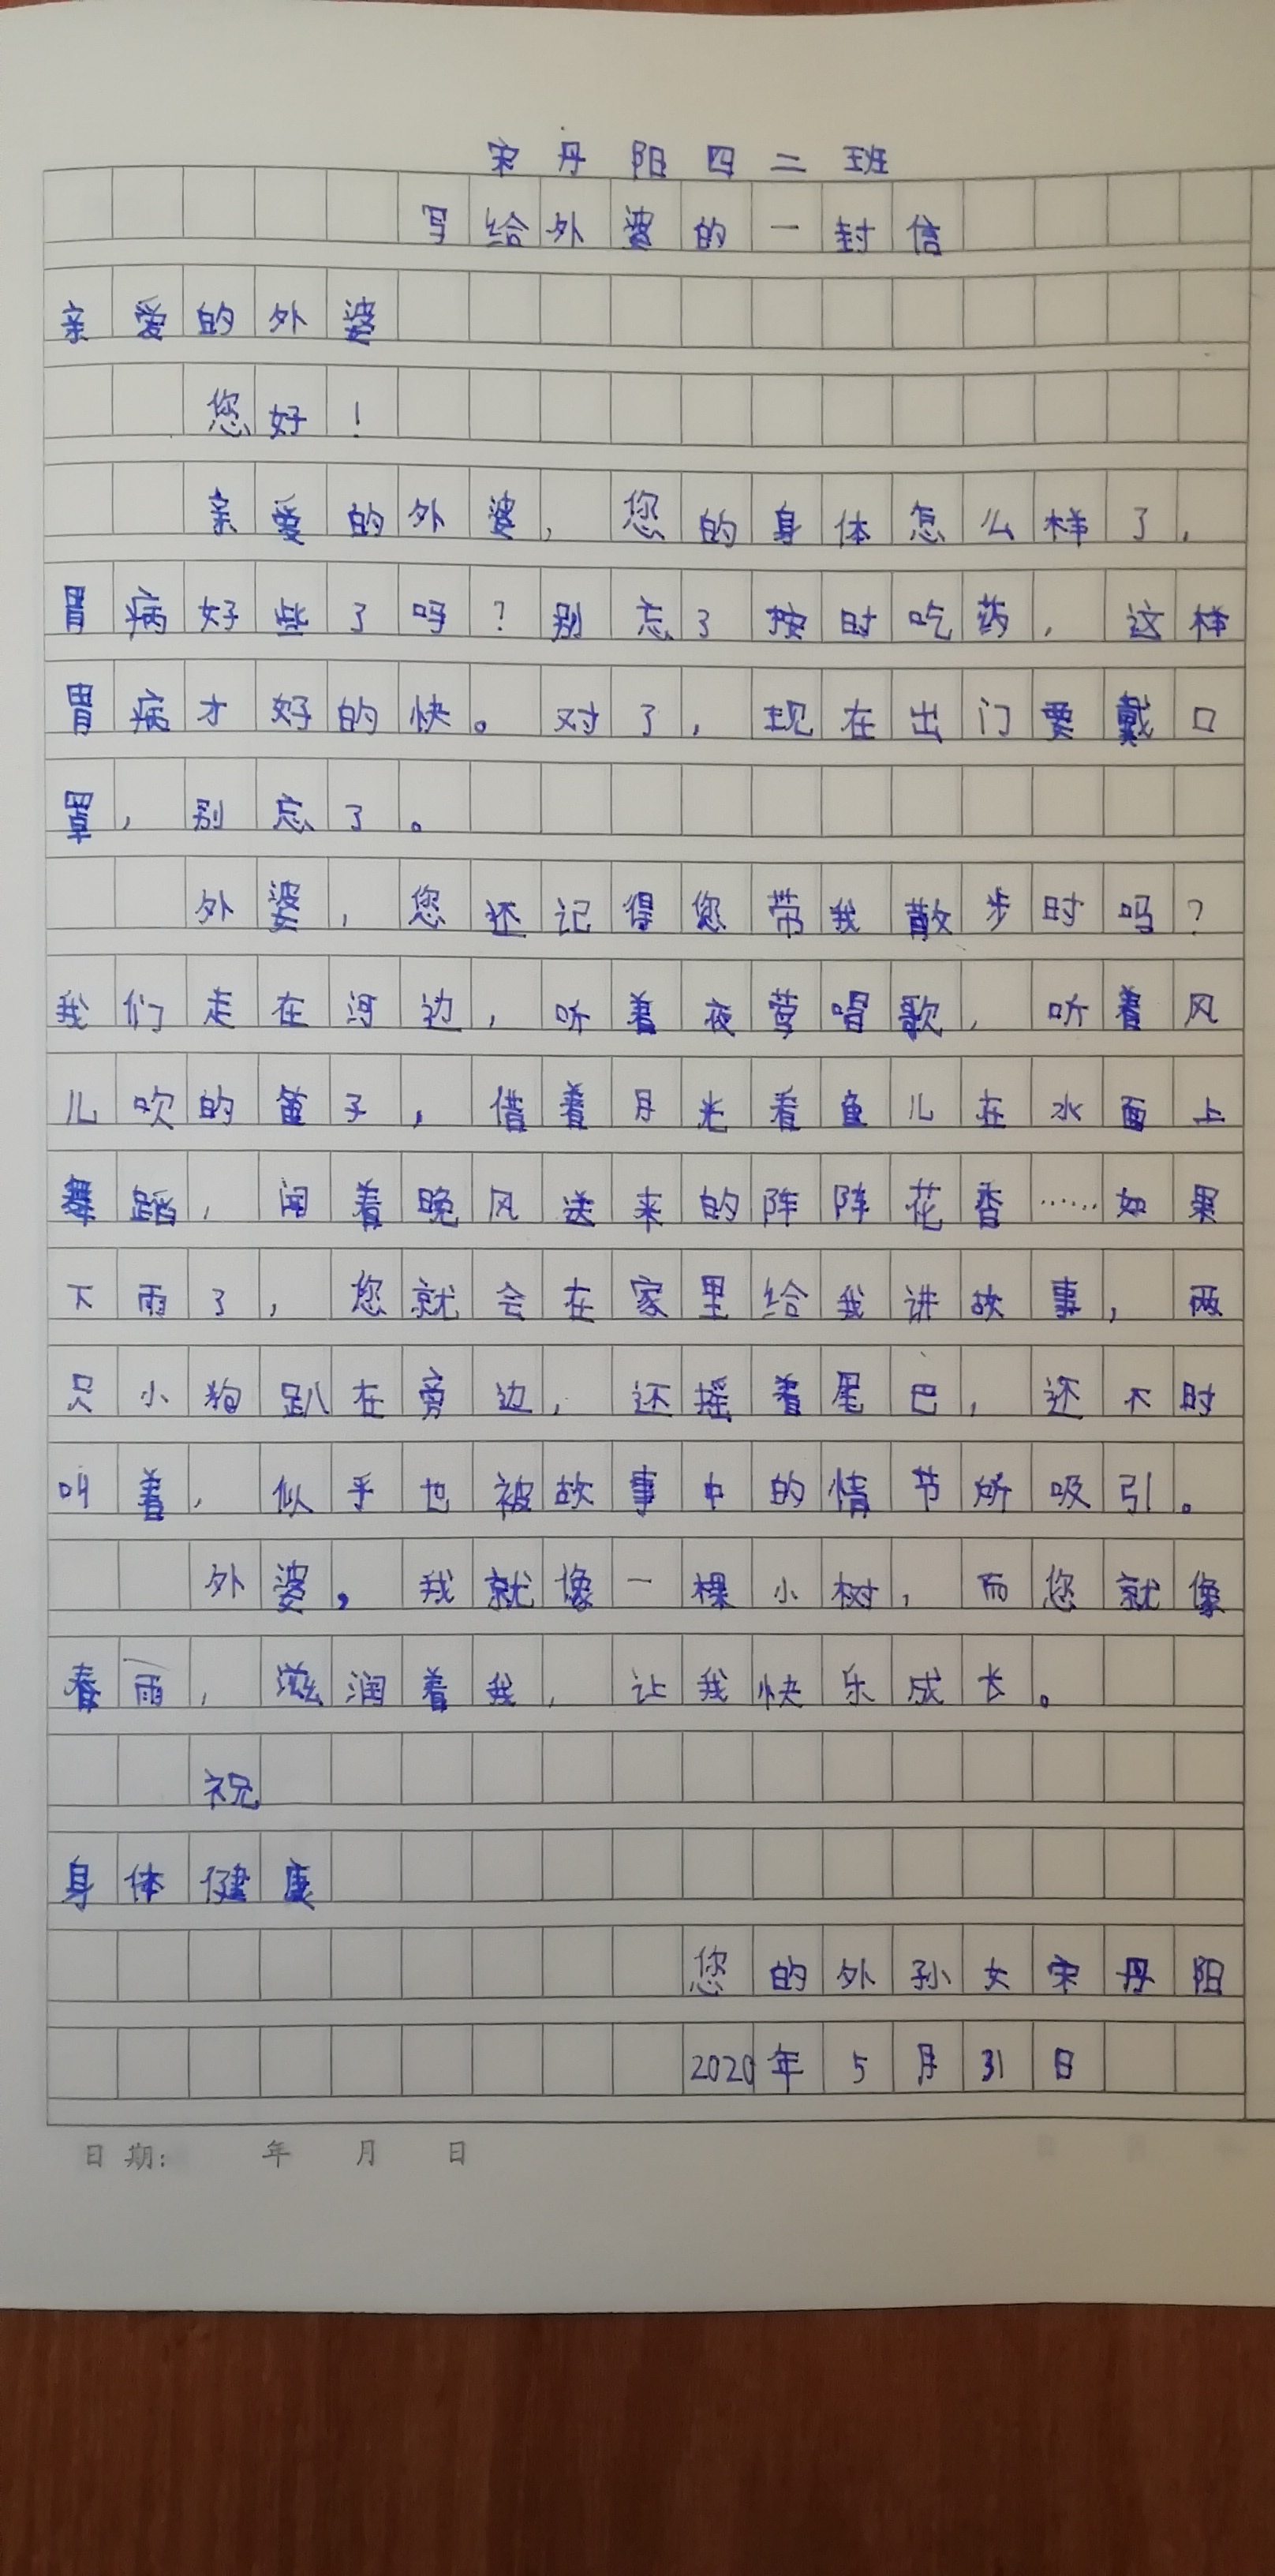 宋丹阳四二班
写给外婆的一封信
亲爱的外婆
您好！
亲爱的外婆，您的身体怎么样了，
胃病好些了吗？别忘了按时吃药，这样
胃病才好的快。对了，现在出门要戴口
罩，别忘了。
外婆，您还记得您带我散步时吗？
我们走在河边，听着夜莺唱歌，听着风
儿吹的笛子，借着月光看鱼儿在水面上
舞蹈，闻着晚风送来的阵阵花香……如果
下雨了，您就会在家里给我讲故事，两
只小狗趴在旁边，还摇着尾巴，还不时
叫着，似乎也被故事中的情节所吸引。
外婆，我就像一棵小树，而您就像
春雨，滋润着我，让我快乐成长。
祝
身体健康
您的外孙女宋丹阳
2020年5月31日
日期: 年 月 日